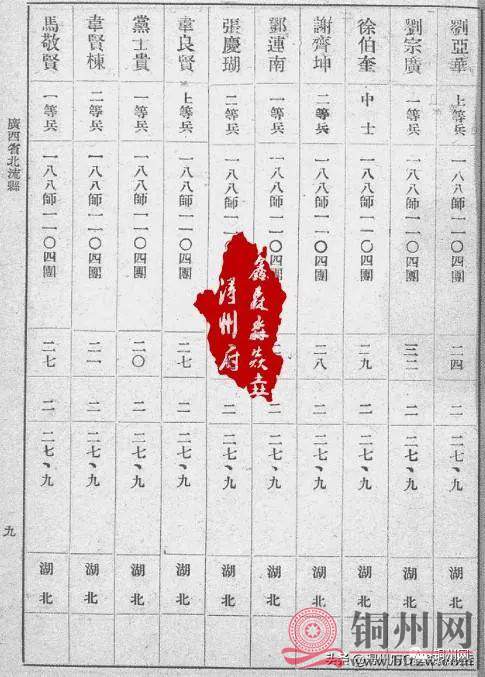 劉亞華 上等兵 一八八師一一〇四團 二四 二 二七、九 湖北
劉宗廣 一等兵 一八八師一一〇四團 三二 二 二七、九 湖北
徐伯奎 中士 一八八師一一〇四團 二九 二 二七、九 湖北
謝齊坤 二等兵 一八八師一一〇四團 二八 二 二七、九 湖北
鄧連南 一等兵 一八八師 〇四團 二七、九 湖北
張慶瑚 二等兵 一八八師 二 二七、九 湖北
韋良賢 上等兵 一八八師一一〇四團 二七 二 二七、九 湖北
黨士貴 一等兵 一八八師一一〇四團 二〇 二 二七、九 湖北
韋賢棟 二等兵 一八八師一一〇四團 二一 二 二七、九 湖北
馬敬賢 一等兵 一八八師一一〇四團 二七 二 二七、九 湖北
廣西省北流縣
九
鑫森淼焱垚
潯州府
铜州网